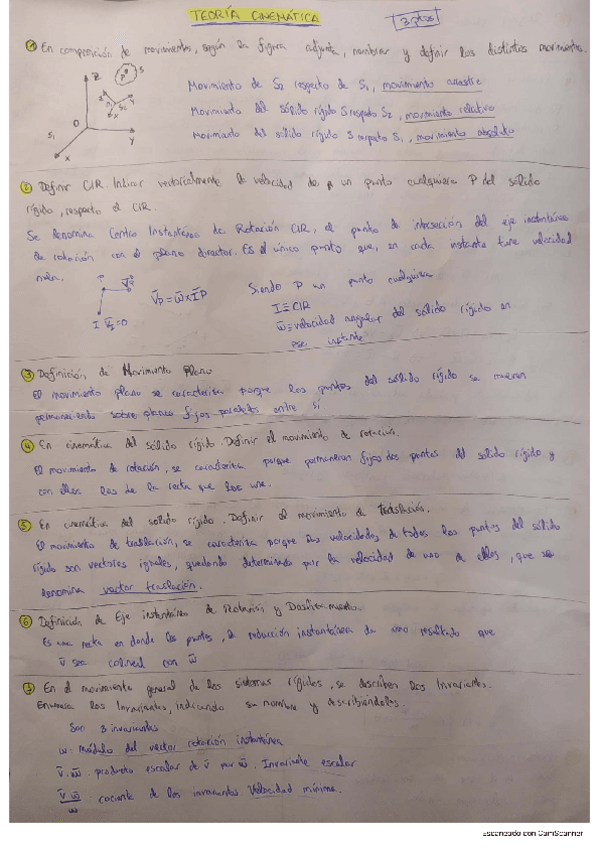 TEORÍA CINEMÁTICA
3 ptos
① En composición de movimientos, según la figura adjunta, nombrar y definir los distintos movimientos.
Z
S
S2
O
Y
X
S1
Movimiento de S2 respecto de S1, movimiento arrastre
Movimiento del sólido rígido S respeto S2, movimiento relativo
Movimiento del sólido rígido S respecto S1, movimiento absoluto
② Definir CIR. Indicar vectorialmente la velocidad de un punto cualquiera P del sólido
rígido, respecto al CIR.
Se denomina Centro Instantáneo de Rotación CIR, al punto de intersección del eje instantáneo
de rotación con el plano director. Es el único punto que, en cada instante tiene velocidad
nula.
P
I V̄I=0
V̄P = ω̄ x ĪP
Siendo P un punto cualquiera
I ≡ CIR
ω̄ ≡ velocidad angular del sólido rígido en
ese instante
③ Definición de Movimiento Plano
El movimiento plano se caracteriza porque los puntos del sólido rígido se mueven
permaneciendo sobre planos fijos paralelos entre sí
④ En cinemática del sólido rígido. Definir el movimiento de rotación.
El movimiento de rotación, se caracteriza porque permanecen fijos dos puntos del sólido rígido y
con ellos los de la recta que los une.
⑤ En cinemática del sólido rígido. Definir el movimiento de traslación.
El movimiento de traslación, se caracteriza porque las velocidades de todos los puntos del sólido
rígido son vectores iguales, quedando determinado por la velocidad de uno de ellos, que se
denomina vector traslación.
⑥ Definición de Eje instantáneo de Rotación y Deslizamiento.
Es una recta en donde los puntos, la reducción instantánea da como resultado que
v̄ sea colineal con ω̄
⑦ En el movimiento general de los sistemas rígidos, se describen los Invariantes.
Enuncia los Invariantes, indicando su nombre y describiéndolos.
Son 3 invariantes
ω: módulo del vector rotación instantánea
v̄·ω̄: producto escalar de v̄ por ω̄. Invariante escalar
v̄·ω̄/ω: cociente de los invariantes. Velocidad mínima.
Escaneado con CamScanner